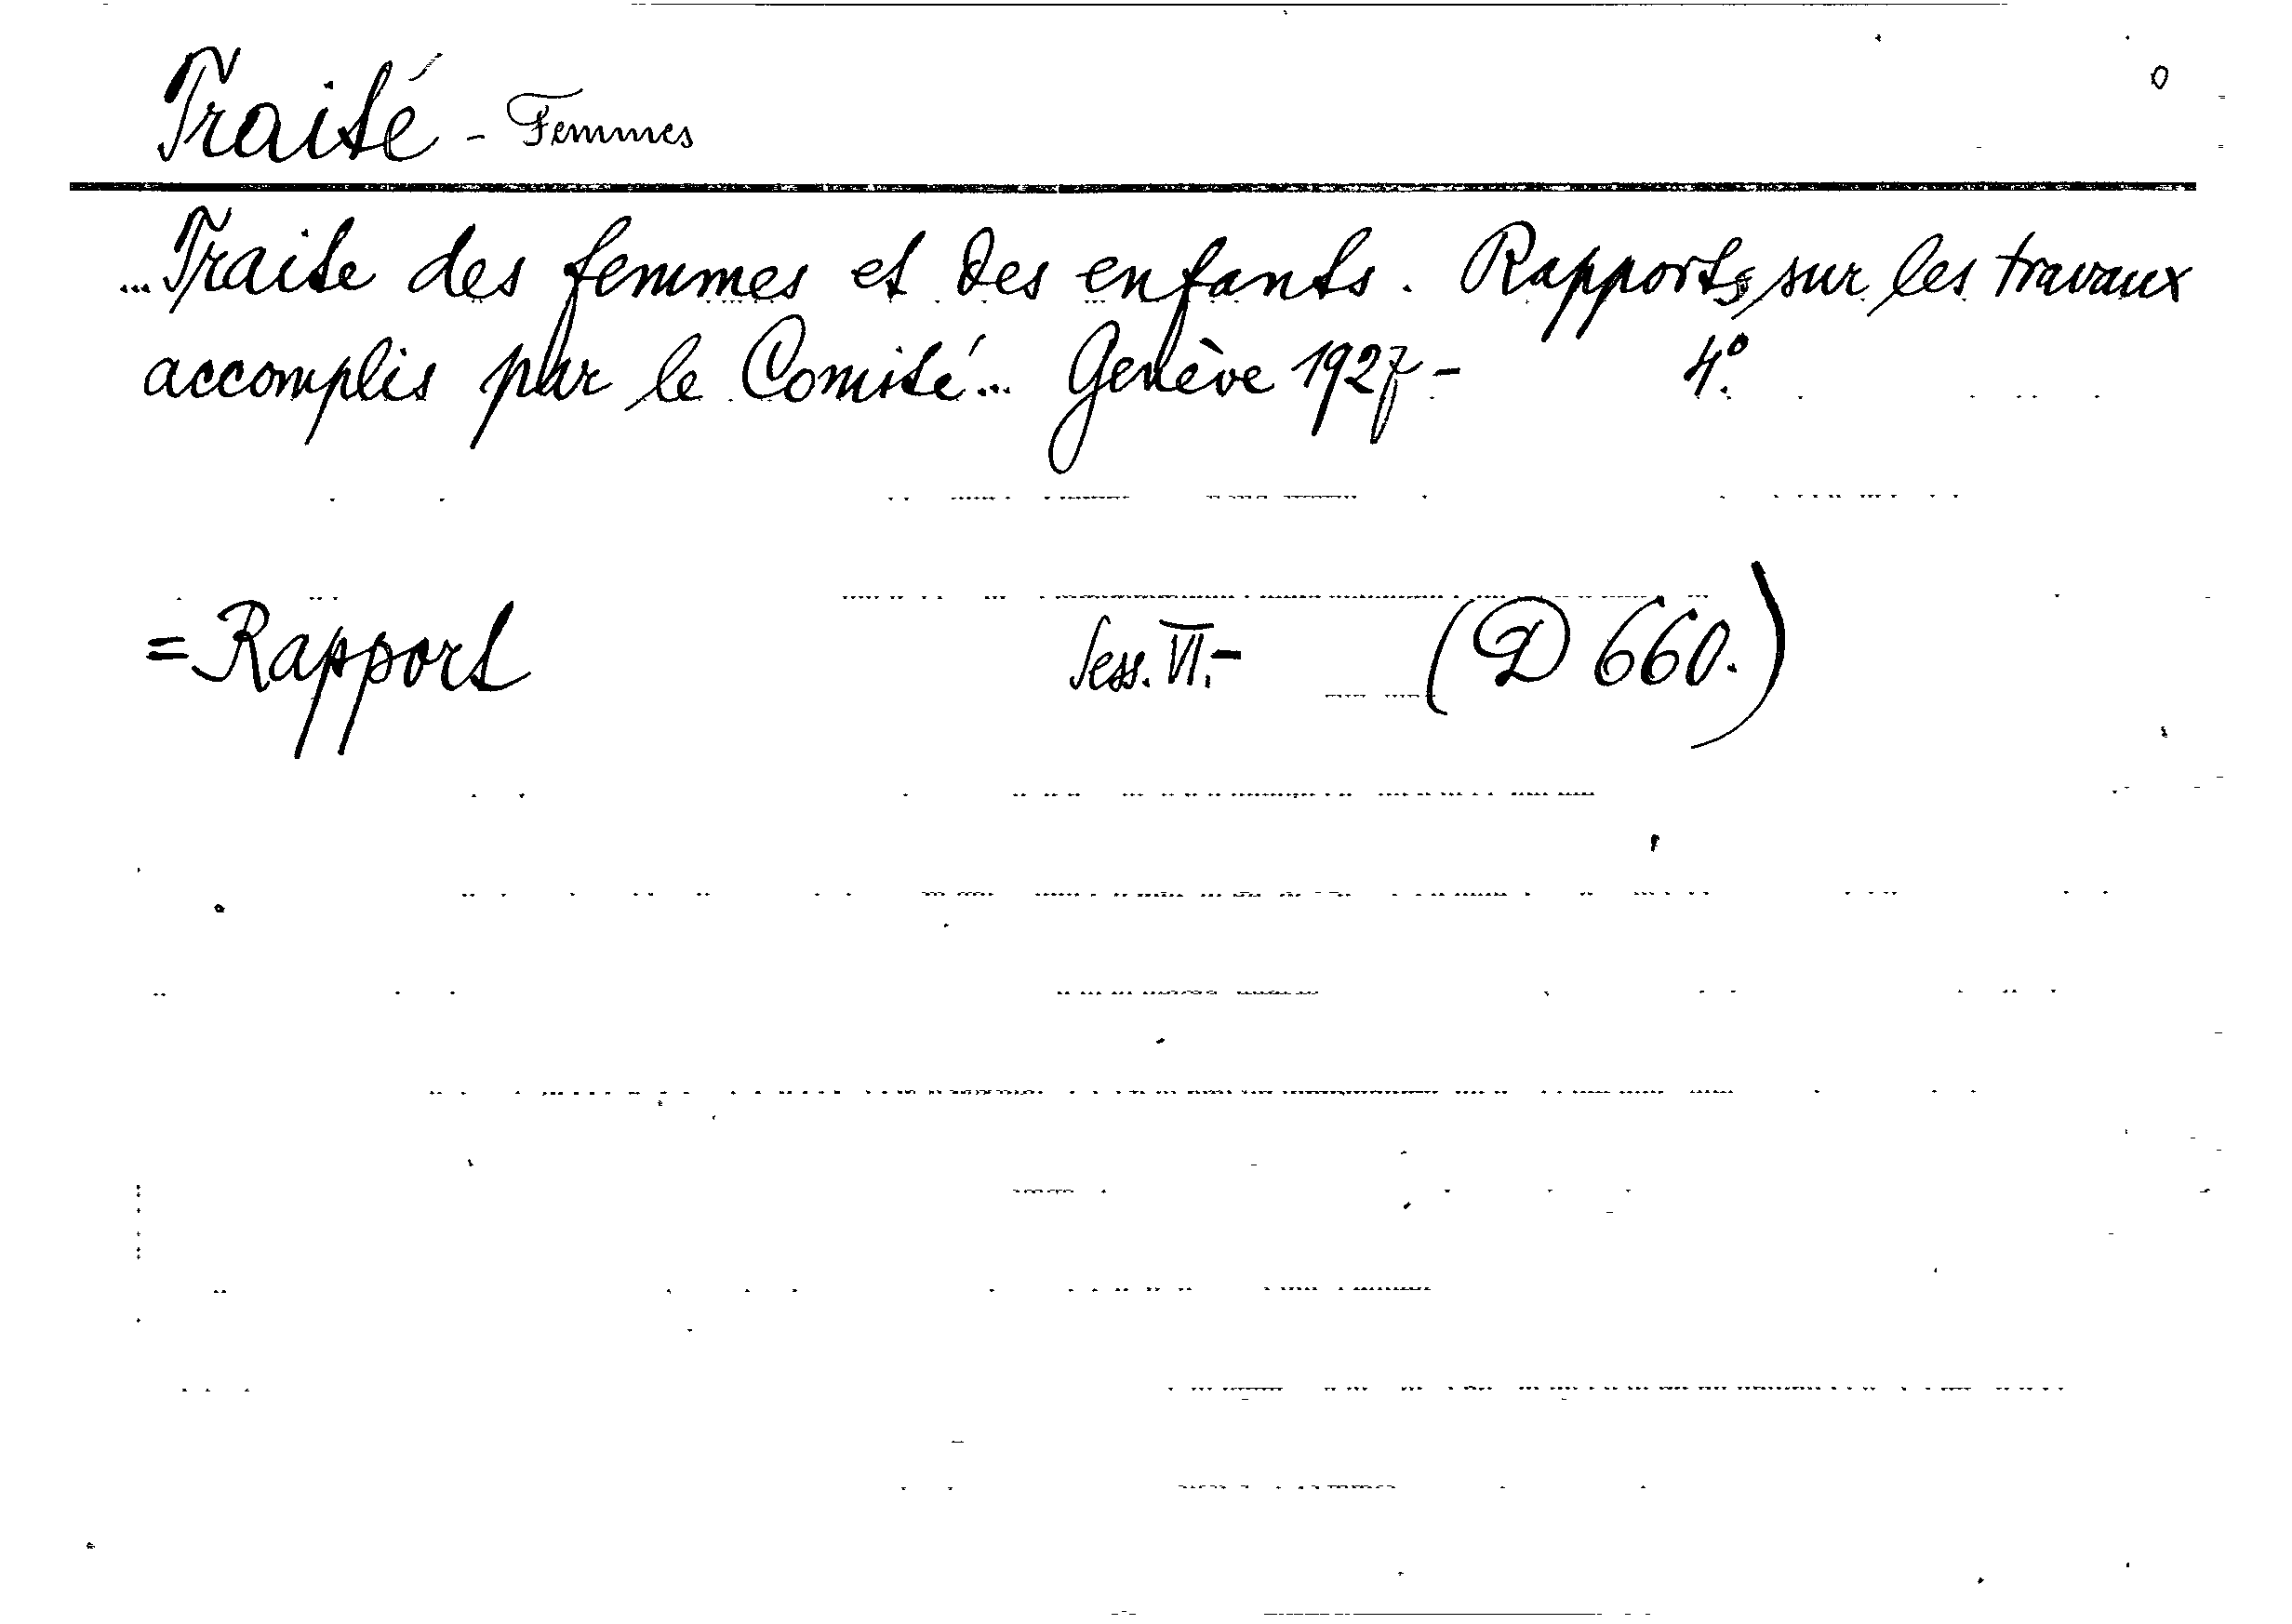 Traité - Femmes
...Traite des femmes et des enfants. Rapports sur les travaux
accomplis par le Comité... Genève 1927- 4º.
=Rapport Sess. VI.- (D 660.)